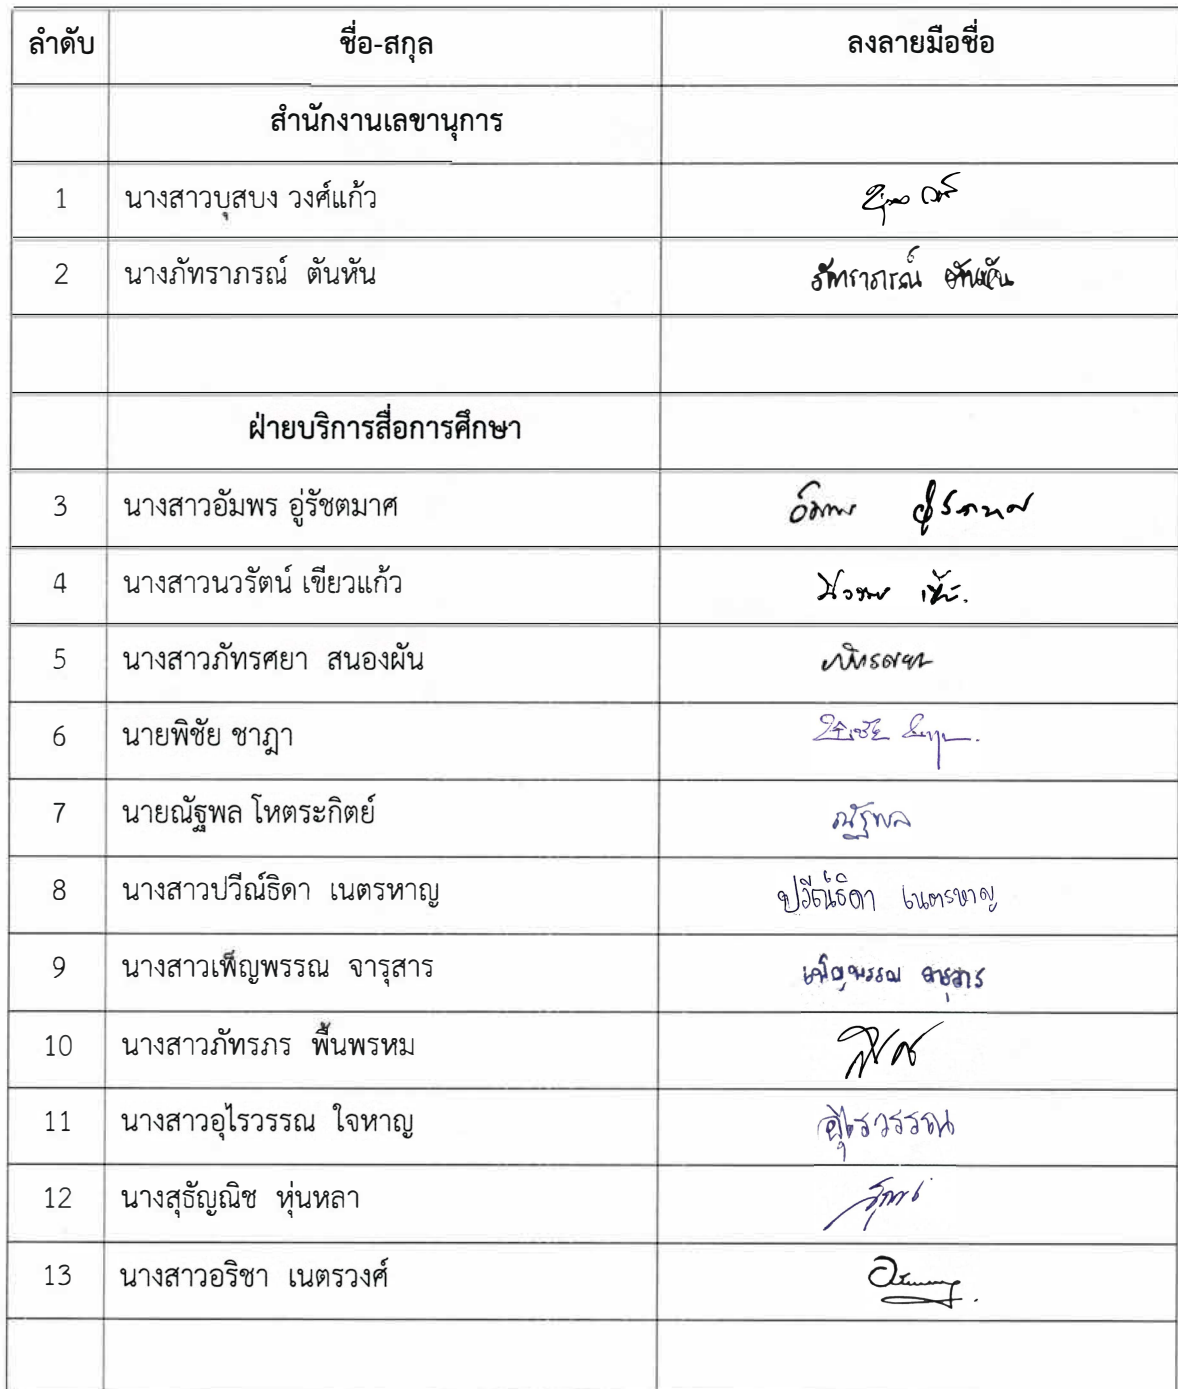 ลำดับ ชื่อ-สกุล ลงลายมือชื่อ
สำนักงานเลขานุการ
1 นางสาวบุสบง วงศ์แก้ว
2 นางภัทราภรณ์ ตันหัน ภัทราภรณ์ ตันหัน
ฝ่ายบริการสื่อการศึกษา
3 นางสาวอัมพร อู่รัชตมาศ อัมพร อู่รัชตมาศ
4 นางสาวนวรัตน์ เขียวแก้ว
5 นางสาวภัทรศยา สนองผัน ภัทรศยา
6 นายพิชัย ชาฎา พิชัย
7 นายณัฐพล โหตระกิตย์ ณัฐพล
8 นางสาวปวีณ์ธิดา เนตรหาญ ปวีณ์ธิดา เนตรหาญ
9 นางสาวเพ็ญพรรณ จารุสาร เพ็ญพรรณ จารุสาร
10 นางสาวภัทรภร พื้นพรหม
11 นางสาวอุไรวรรณ ใจหาญ อุไรวรรณ
12 นางสุธัญณิช หุ่นหลา
13 นางสาวอริชา เนตรวงศ์